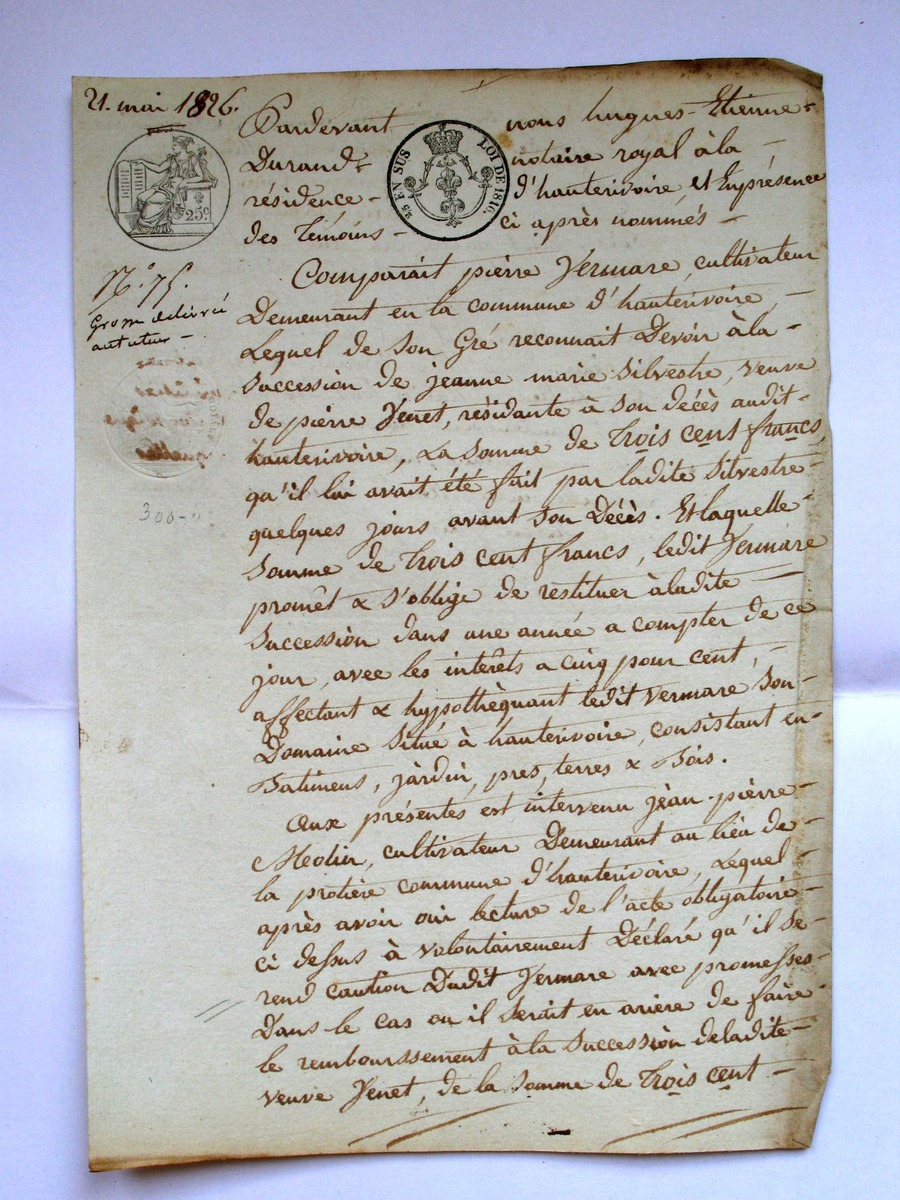 21. mai 1826.
Pardevant nous hugues-Etienne-
Durand- notaire royal à la -
résidence - d'hauterivoire et Enprésence
des Témoins - ci après nommés -
25 EN SUS LOI DE 1816.
25c
N° 75.
Grosse délivré
au tuteur -
300-"
Comparait pierre Vermare, cultivateur
Demeurant en la commune d'hauterivoire, -
Lequel de son Gré reconnait Devoir àla -
Succession de jeanne marie Silvestre, veuve
de pierre Venet, résidante à son décès audit-
hauterivoire, La somme de Trois cent francs,
qu'il lui avait été fait par ladite Silvestre-
quelques jours avant son Décès. Et laquelle
Somme de Trois cent francs, ledit Vermare
promêt & s'oblige de restituer àladite -
Succession dans une année a compter de ce
jour, avec les intérêts a cinq pour cent, -
affectant & hypothèquant ledit Vermare Son-
Domaine Situé à hauterivoire, consistant en-
Batimens, jardin, pres, terres & Bois.
Aux présentes est intervenu jean-pierre-
Meolin, cultivateur Demeurant au lieu de-
la protière commune d'hauterivoire, Lequel-
après avoir oui lecture de l'acte obligatoire-
ci dessus à volontairement Déclaré qu'il se-
rend caution Dudit Vermare avec promesses-
Dans le cas ou il Serait en arière de faire-
le remboursement à la Succession deladite-
veuve Venet, de la Somme de Trois cent -